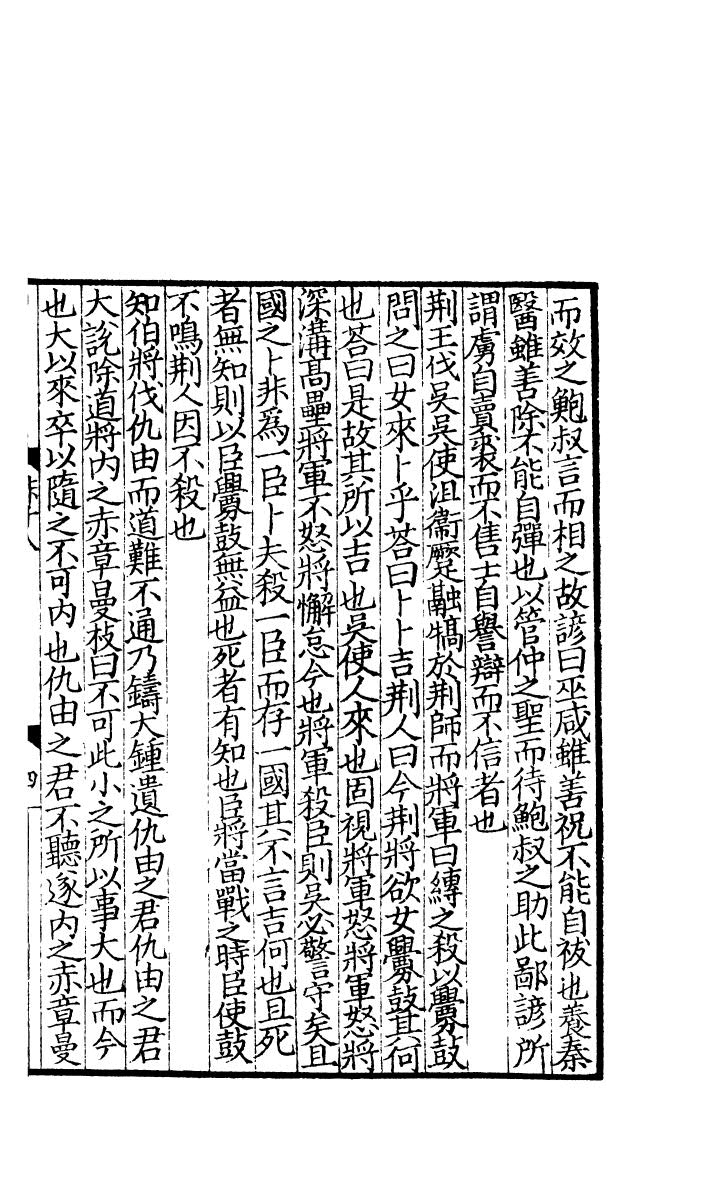 而效之鮑叔言而相之故諺曰巫咸雖善祝不能自祓也養秦
醫雖善除不能自彈也以管仲之聖而待鮑叔之助此鄙諺所
謂虜自賣裘而不售士自譽辯而不信者也
荆王伐吳吳使沮衞蹷融犒於荆師而將軍曰縛之殺以釁鼓
問之曰女來卜乎荅曰卜卜吉荆人曰今荆將欲女釁鼓其何
也荅曰是故其所以吉也吳使人來也固視將軍怒將軍怒將
深溝髙壘將軍不怒將懈怠今也將軍殺臣則吳必警守矣且
國之卜非爲一臣卜夫殺一臣而存一國其不言吉何也且死
者無知則以臣釁鼓無益也死者有知也臣將當戰之時臣使鼓
不鳴荆人因不殺也
知伯將伐仇由而道難不通乃鑄大鍾遺仇由之君仇由之君
大說除道將內之赤章曼枝曰不可此小之所以事大也而今
也大以來卒以隨之不可内也仇由之君不聽遂内之赤章曼